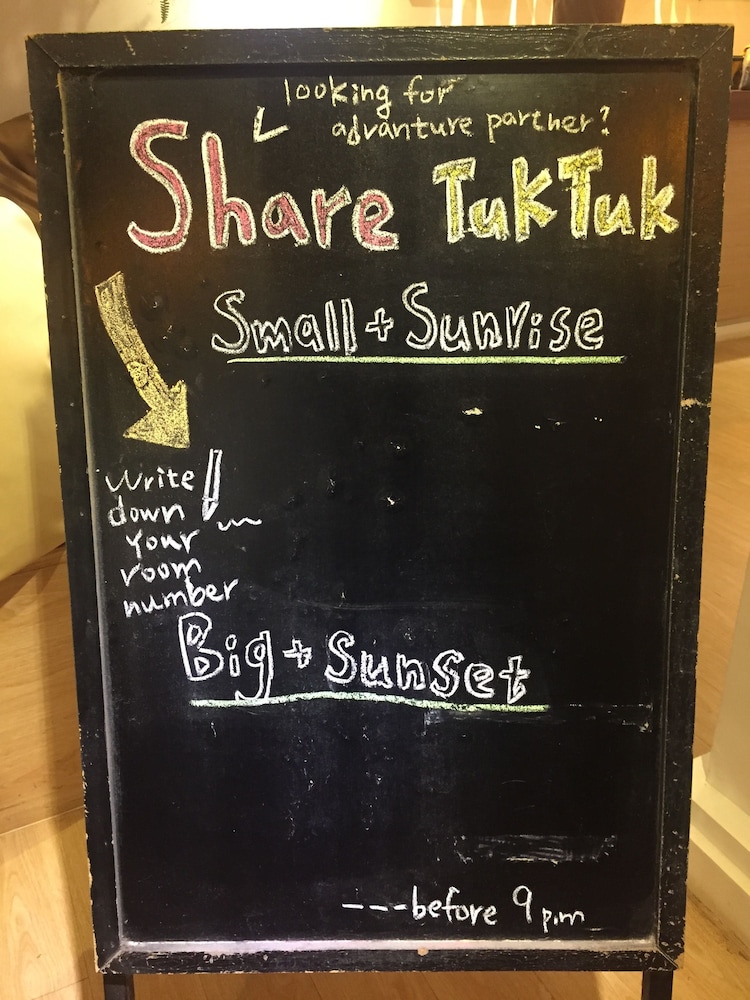 looking for
advanture partner?
Share TukTuk
Small + Sunrise
Write
down
your
room
number
Big + Sunset
---before 9 p.m